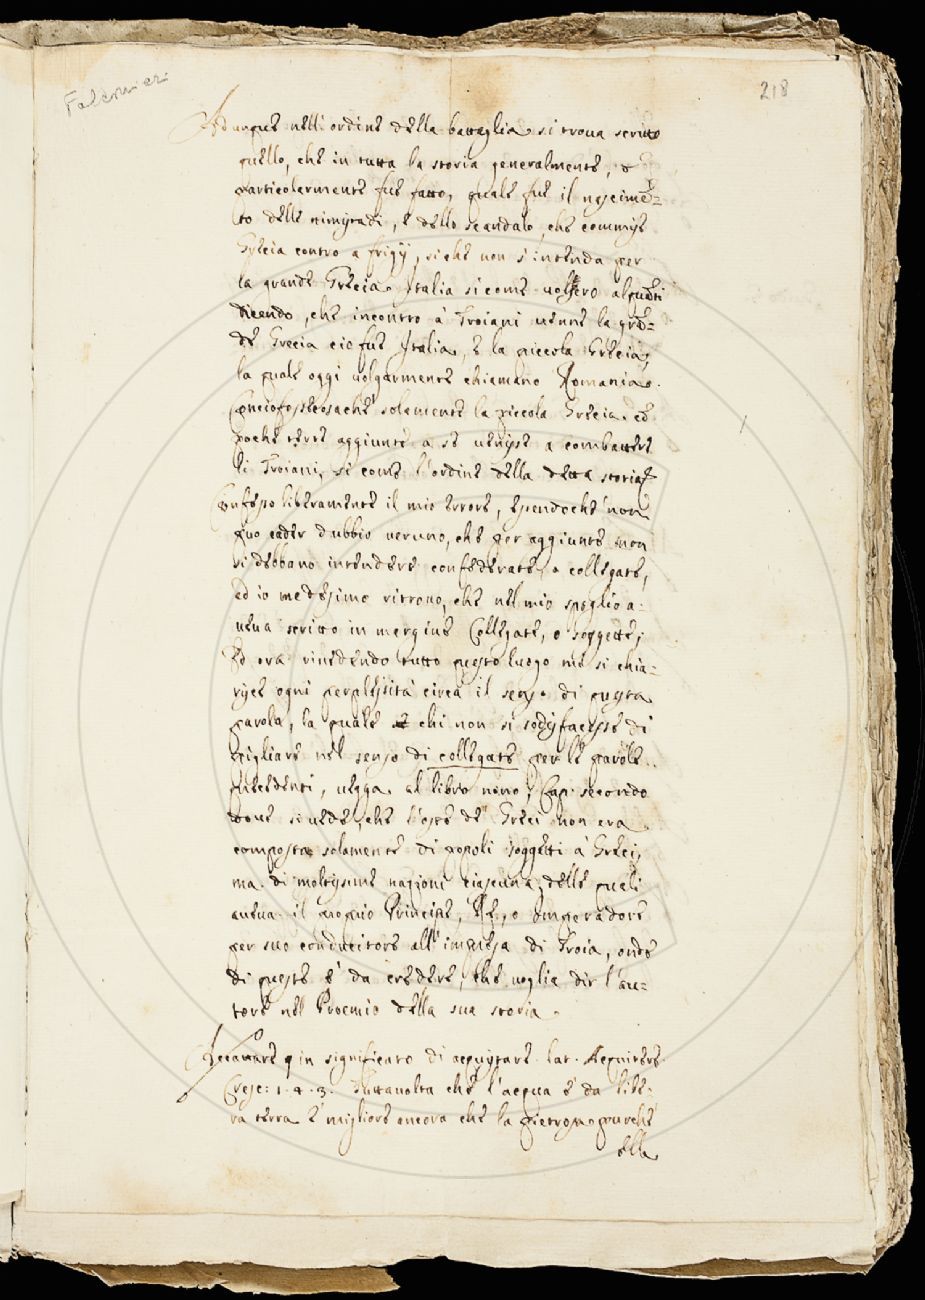 218
Adunque nell'ordine della battaglia si troua scritto
quello, che in tutta la storia generalmente, o
particolarmente fue fatto, quale fue il nascimē=
to delle nimistadi, e dello scandalo, che commise
Grecia contro a frigij, siche non s'intenda per
la grande Grecia Italia si come uollero alquāti
dicendo, che incontro à Troiani uenne la grā=
de Grecia cio fue Italia, e la piccola Grecia,
la quale oggi uolgarmente chiamano Romania.
Conciofossecosache solamente la piccola Grecia, ed
poche terre aggiunte a se uenisse a combattere
li Troiani, si come l'ordine della detta storia
Confesso liberamente il mio errore, essendoche non
puo cader dubbio ueruno, che per aggiunte non
si debbano intendere confederate, o collegate,
ed io medesimo ritrouo, che nel mio spoglio a=
ueua scritto in mergine Collegate, o soggette;
Ed ora riuedendo tutto questo luogo me si chia=
risce ogni perplessità circa il senso di questa
parola, la quale chi non si sodisfacesse di
pigliare nel senso di collegate per le parole
precedenti, uegga al libro nono, Cap. secondo
doue si uede, che l'oste de Greci non era
composta solamente di popoli soggetti à Greci,
ma di moltissime nazioni ciascuna delle quali
aueua il proprio Principe, Re, o Imperadore
per suo conducitore all'impresa di Troia, onde
di queste è da credere, che uoglia dir l'au=
tore nel Proemio della sua storia.
Accattare in significato di acquistare lat. Acquirere.
Cresc: 1. 4. 3. Tuttauolta che l'acqua è da libe=
ra terra è migliore ancora che la pietrosa purche
ella